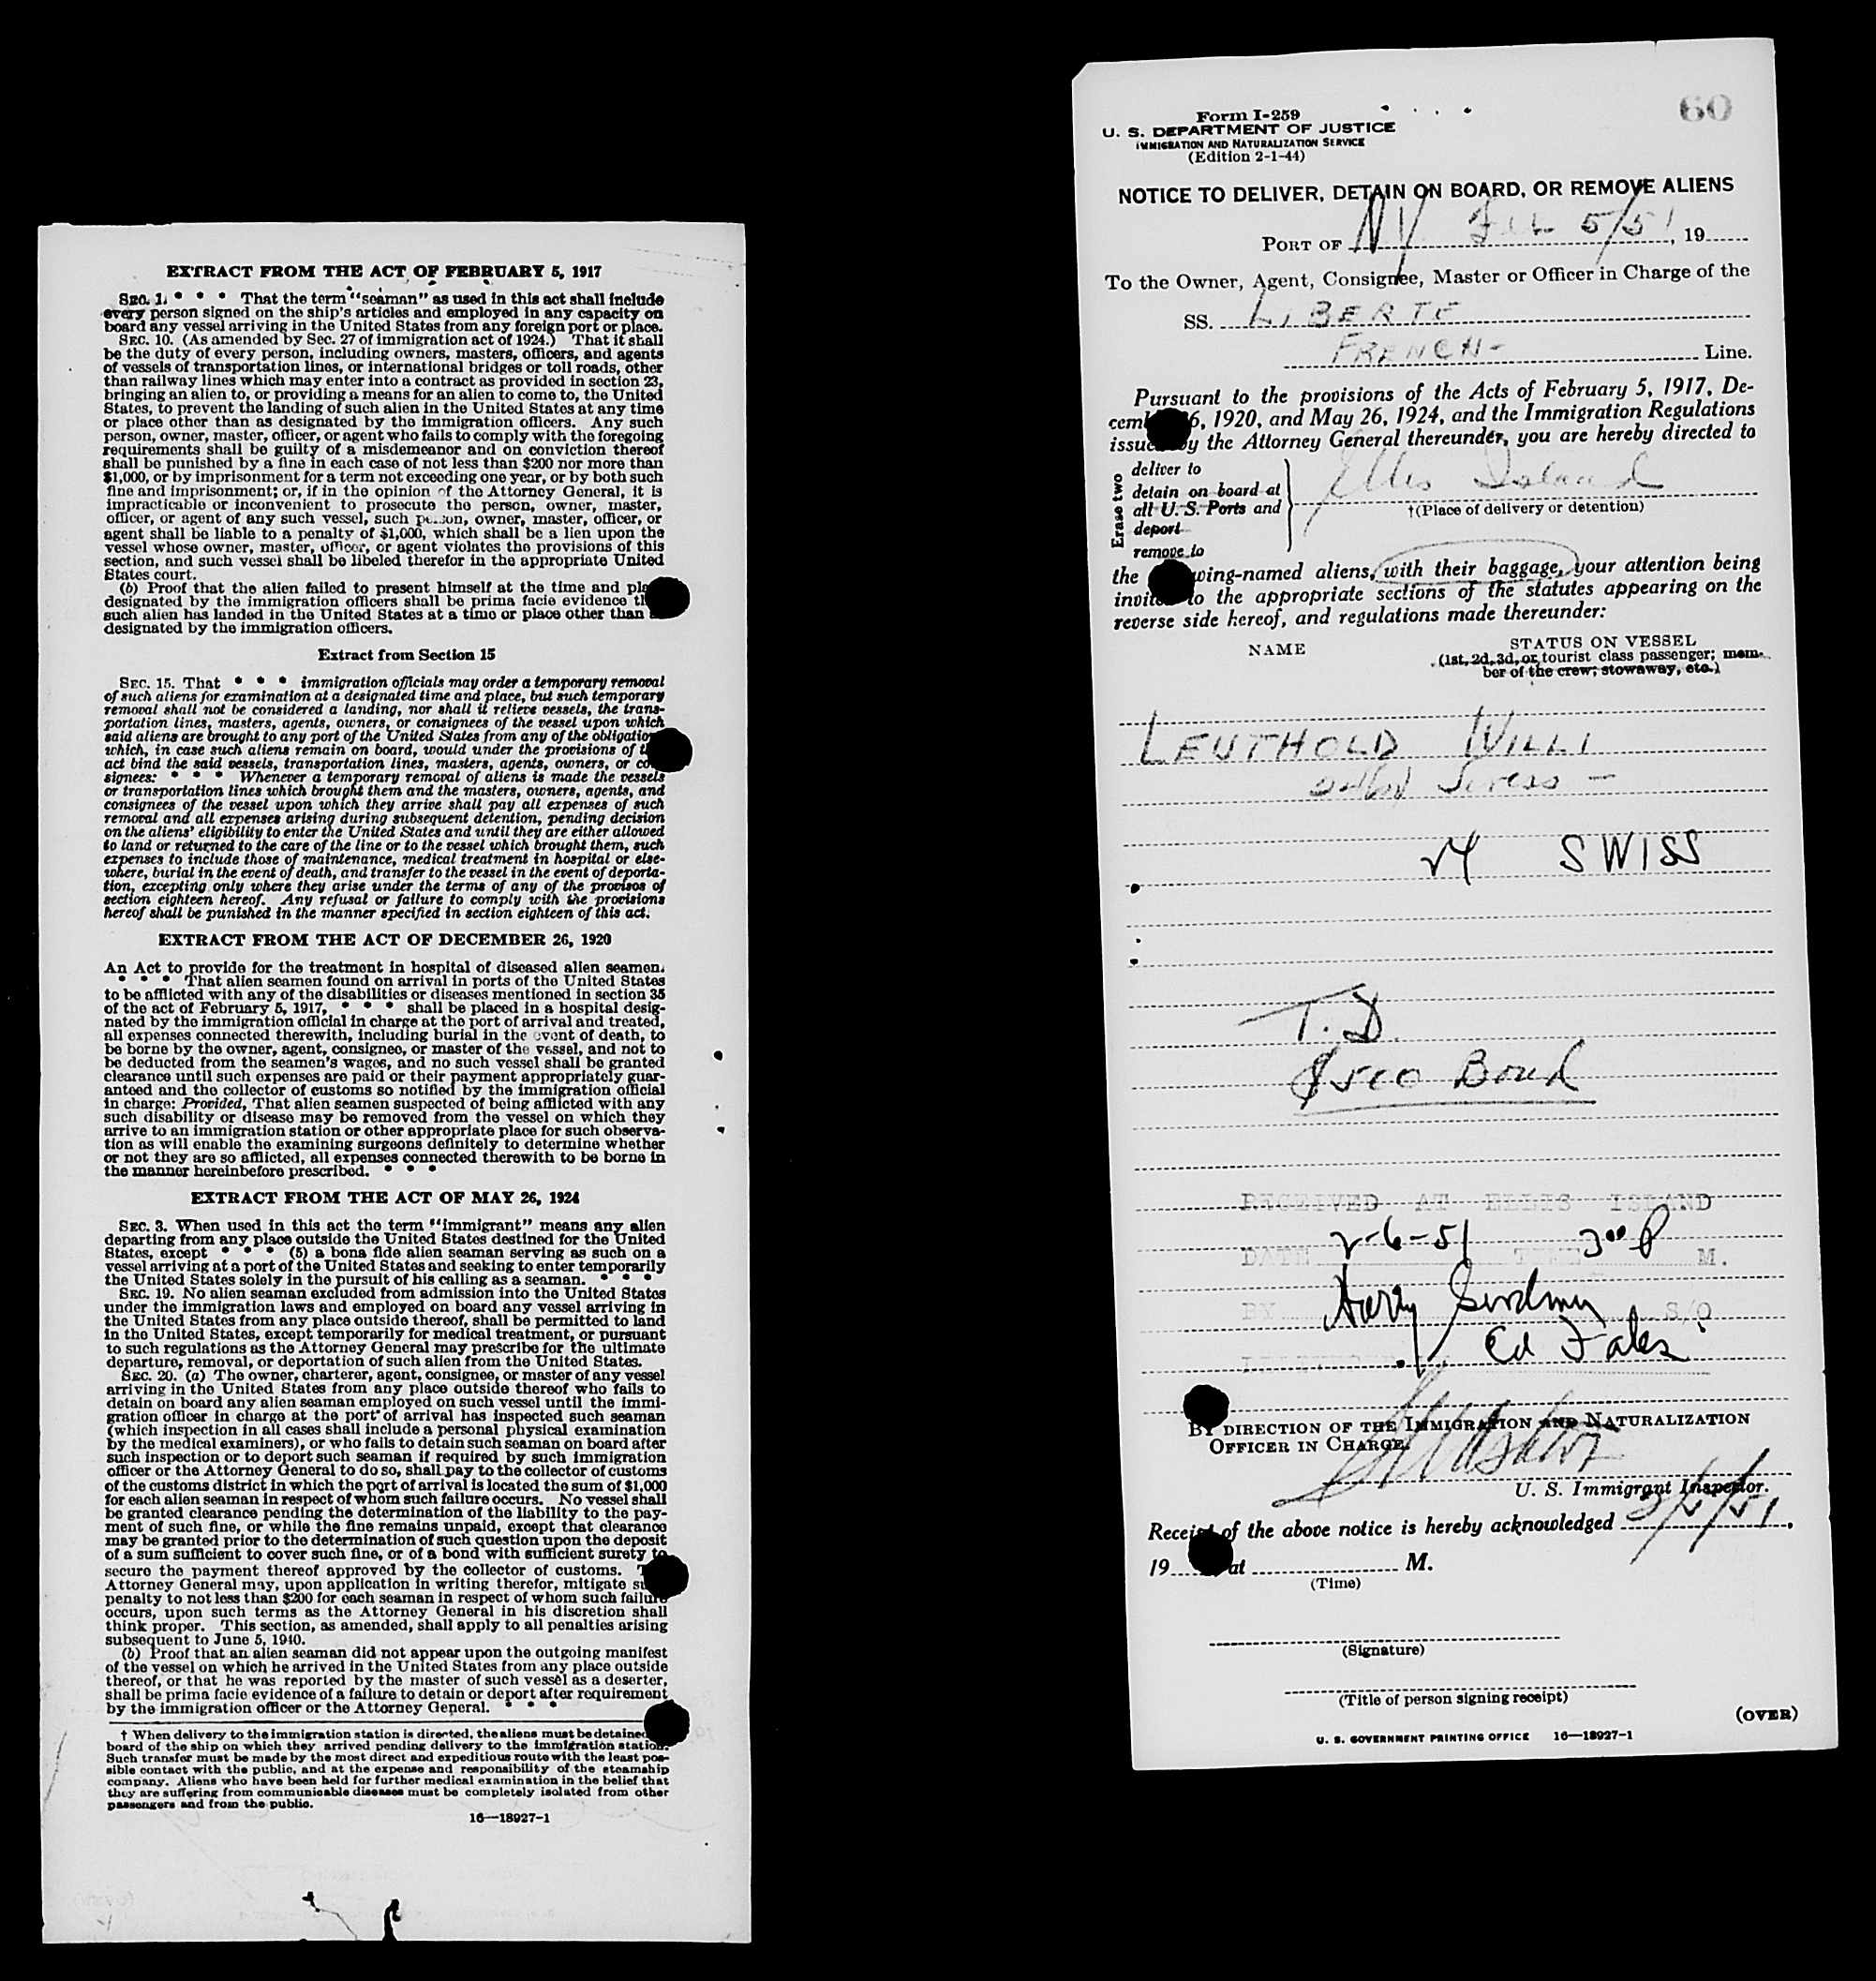 EXTRACT FROM THE ACT OF FEBRUARY 5, 1917
SEC. 1. * * * That the term "seaman" as used in this act shall include
every person signed on the ship's articles and employed in any capacity on
board any vessel arriving in the United States from any foreign port or place.
SEC. 10. (As amended by Sec. 27 of immigration act of 1924.) That it shall
be the duty of every person, including owners, masters, officers, and agents
of vessels of transportation lines, or international bridges or toll roads, other
than railway lines which may enter into a contract as provided in section 23,
bringing an alien to, or providing a means for an alien to come to, the United
States, to prevent the landing of such alien in the United States at any time
or place other than as designated by the immigration officers. Any such
person, owner, master, officer, or agent who fails to comply with the foregoing
requirements shall be guilty of a misdemeanor and on conviction thereof
shall be punished by a fine in each case of not less than $200 nor more than
$1,000, or by imprisonment for a term not exceeding one year, or by both such
fine and imprisonment; or, if in the opinion of the Attorney General, it is
impracticable or inconvenient to prosecute the person, owner, master,
officer, or agent of any such vessel, such person, owner, master, officer, or
agent shall be liable to a penalty of $1,000, which shall be a lien upon the
vessel whose owner, master, officer, or agent violates the provisions of this
section, and such vessel shall be libeled therefor in the appropriate United
States court.
(b) Proof that the alien failed to present himself at the time and
designated by the immigration officers shall be prima facie evidence
such alien has landed in the United States at a time or place other than
designated by the immigration officers.
Extract from Section 15
SEC. 15. That * * * immigration officials may order a temporary removal
of such aliens for examination at a designated time and place, but such temporary
removal shall not be considered a landing, nor shall it relieve vessels, the trans-
portation lines, masters, agents, owners, or consignees of the vessel upon which
said aliens are brought to any port of the United States from any of the obligation
which, in case such aliens remain on board, would under the provisions of
act bind the said vessels, transportation lines, masters, agents, owners, or
signees: * * * Whenever a temporary removal of aliens is made the vessels
or transportation lines which brought them and the masters, owners, agents, and
consignees of the vessel upon which they arrive shall pay all expenses of such
removal and all expenses arising during subsequent detention, pending decision
on the aliens' eligibility to enter the United States and until they are either allowed
to land or returned to the care of the line or to the vessel which brought them, such
expenses to include those of maintenance, medical treatment in hospital or else-
where, burial in the event of death, and transfer to the vessel in the event of deporta-
tion, excepting only where they arise under the terms of any of the provisos of
section eighteen hereof. Any refusal or failure to comply with the provisions
hereof shall be punished in the manner specified in section eighteen of this act.
EXTRACT FROM THE ACT OF DECEMBER 26, 1920
An Act to provide for the treatment in hospital of diseased alien seamen.
* * * That alien seamen found on arrival in ports of the United States
to be afflicted with any of the disabilities or diseases mentioned in section 35
of the act of February 5, 1917, * * * shall be placed in a hospital desig-
nated by the immigration official in charge at the port of arrival and treated,
all expenses connected therewith, including burial in the event of death, to
be borne by the owner, agent, consignee, or master of the vessel, and not to
be deducted from the seamen's wages, and no such vessel shall be granted
clearance until such expenses are paid or their payment appropriately guar-
anteed and the collector of customs so notified by the immigration official
in charge: Provided, That alien seamen suspected of being afflicted with any
such disability or disease may be removed from the vessel on which they
arrive to an immigration station or other appropriate place for such observa-
tion as will enable the examining surgeons definitely to determine whether
or not they are so afflicted, all expenses connected therewith to be borne in
the manner hereinbefore prescribed. * * *
EXTRACT FROM THE ACT OF MAY 26, 1924
SEC. 3. When used in this act the term "immigrant" means any alien
departing from any place outside the United States destined for the United
States, except * * * (5) a bona fide alien seaman serving as such on a
vessel arriving at a port of the United States and seeking to enter temporarily
the United States solely in the pursuit of his calling as a seaman. * * *
SEC. 19. No alien seaman excluded from admission into the United States
under the immigration laws and employed on board any vessel arriving in
the United States from any place outside thereof, shall be permitted to land
in the United States, except temporarily for medical treatment, or pursuant
to such regulations as the Attorney General may prescribe for the ultimate
departure, removal, or deportation of such alien from the United States.
SEC. 20. (a) The owner, charterer, agent, consignee, or master of any vessel
arriving in the United States from any place outside thereof who fails to
detain on board any alien seaman employed on such vessel until the immi-
gration officer in charge at the port of arrival has inspected such seaman
(which inspection in all cases shall include a personal physical examination
by the medical examiners), or who fails to detain such seaman on board after
such inspection or to deport such seaman if required by such immigration
officer or the Attorney General to do so, shall pay to the collector of customs
of the customs district in which the port of arrival is located the sum of $1,000
for each alien seaman in respect of whom such failure occurs. No vessel shall
be granted clearance pending the determination of the liability to the pay-
ment of such fine, or while the fine remains unpaid, except that clearance
may be granted prior to the determination of such question upon the deposit
of a sum sufficient to cover such fine, or of a bond with sufficient surety to
secure the payment thereof approved by the collector of customs.
Attorney General may, upon application in writing therefor, mitigate
penalty to not less than $200 for each seaman in respect of whom such failure
occurs, upon such terms as the Attorney General in his discretion shall
think proper. This section, as amended, shall apply to all penalties arising
subsequent to June 5, 1940.
(b) Proof that an alien seaman did not appear upon the outgoing manifest
of the vessel on which he arrived in the United States from any place outside
thereof, or that he was reported by the master of such vessel as a deserter,
shall be prima facie evidence of a failure to detain or deport after requirement
by the immigration officer or the Attorney General. * * *
† When delivery to the immigration station is directed, the aliens must be detained
board of the ship on which they arrived pending delivery to the immigration station.
Such transfer must be made by the most direct and expeditious route with the least pos-
sible contact with the public, and at the expense and responsibility of the steamship
company. Aliens who have been held for further medical examination in the belief that
they are suffering from communicable diseases must be completely isolated from other
passengers and from the public.
16—18927-1
60
Form I-259
U. S. DEPARTMENT OF JUSTICE
IMMIGRATION AND NATURALIZATION SERVICE
(Edition 2-1-44)
NOTICE TO DELIVER, DETAIN ON BOARD, OR REMOVE ALIENS
PORT OF NY Feb 5/51, 19
To the Owner, Agent, Consignee, Master or Officer in Charge of the
SS. LIBERTE
FRENCH - Line.
Pursuant to the provisions of the Acts of February 5, 1917, De-
26, 1920, and May 26, 1924, and the Immigration Regulations
issued by the Attorney General thereunder, you are hereby directed to
Erase two
deliver to
detain on board at
all U. S. Ports and
deport
remove to
Ellis Island
†(Place of delivery or detention)
the following-named aliens, with their baggage, your attention being
invited to the appropriate sections of the statutes appearing on the
reverse side hereof, and regulations made thereunder:
NAME
STATUS ON VESSEL
(1st, 2d, 3d, or tourist class passenger; mem-
ber of the crew; stowaway, etc.)
LEUTHOLD WILLI
Swiss -
24 SWISS
T.D.
$500 Bond
RECEIVED AT ELLIS ISLAND
DATE 2-6-51 TIME 3 00 P M.
BY Harry S/O
Ed Fales
BY DIRECTION OF THE IMMIGRATION AND NATURALIZATION
OFFICER IN CHARGE.
U. S. Immigrant Inspector.
Receipt of the above notice is hereby acknowledged 2/5/51,
19 at M.
(Time)
(Signature)
(Title of person signing receipt)
(OVER)
U. S. GOVERNMENT PRINTING OFFICE 16—18927-1